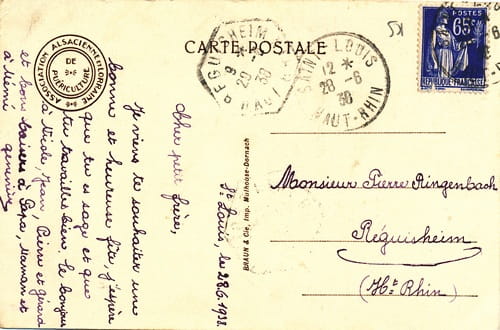 CARTE POSTALE
POSTES
65c
REPUBLIQUE FRANCAISE
REGUISHEIM
9 *
29 6
38
HAUT RHIN
SAINT LOUIS
12 *
28-6
38
HAUT-RHIN
ASSOCIATION ALSACIENNE & LORRAINE
DE
PUÉRICULTURE
St. Louis, le 28.6.1938.
Cher petit frère,
Je viens te souhaiter une
bonne et heureuse fête, j'espère
que tu es sage et que
tu travailles bien. le bonjour
à tide, Jean, Pierre et Gérard
et bons baisers à Papa, Maman et
à Mémé
geneviève
BRAUN & Cie, Imp. Mulhouse-Dornach
Monsieur Pierre Ringenbach
Réguisheim
(Ht. Rhin)